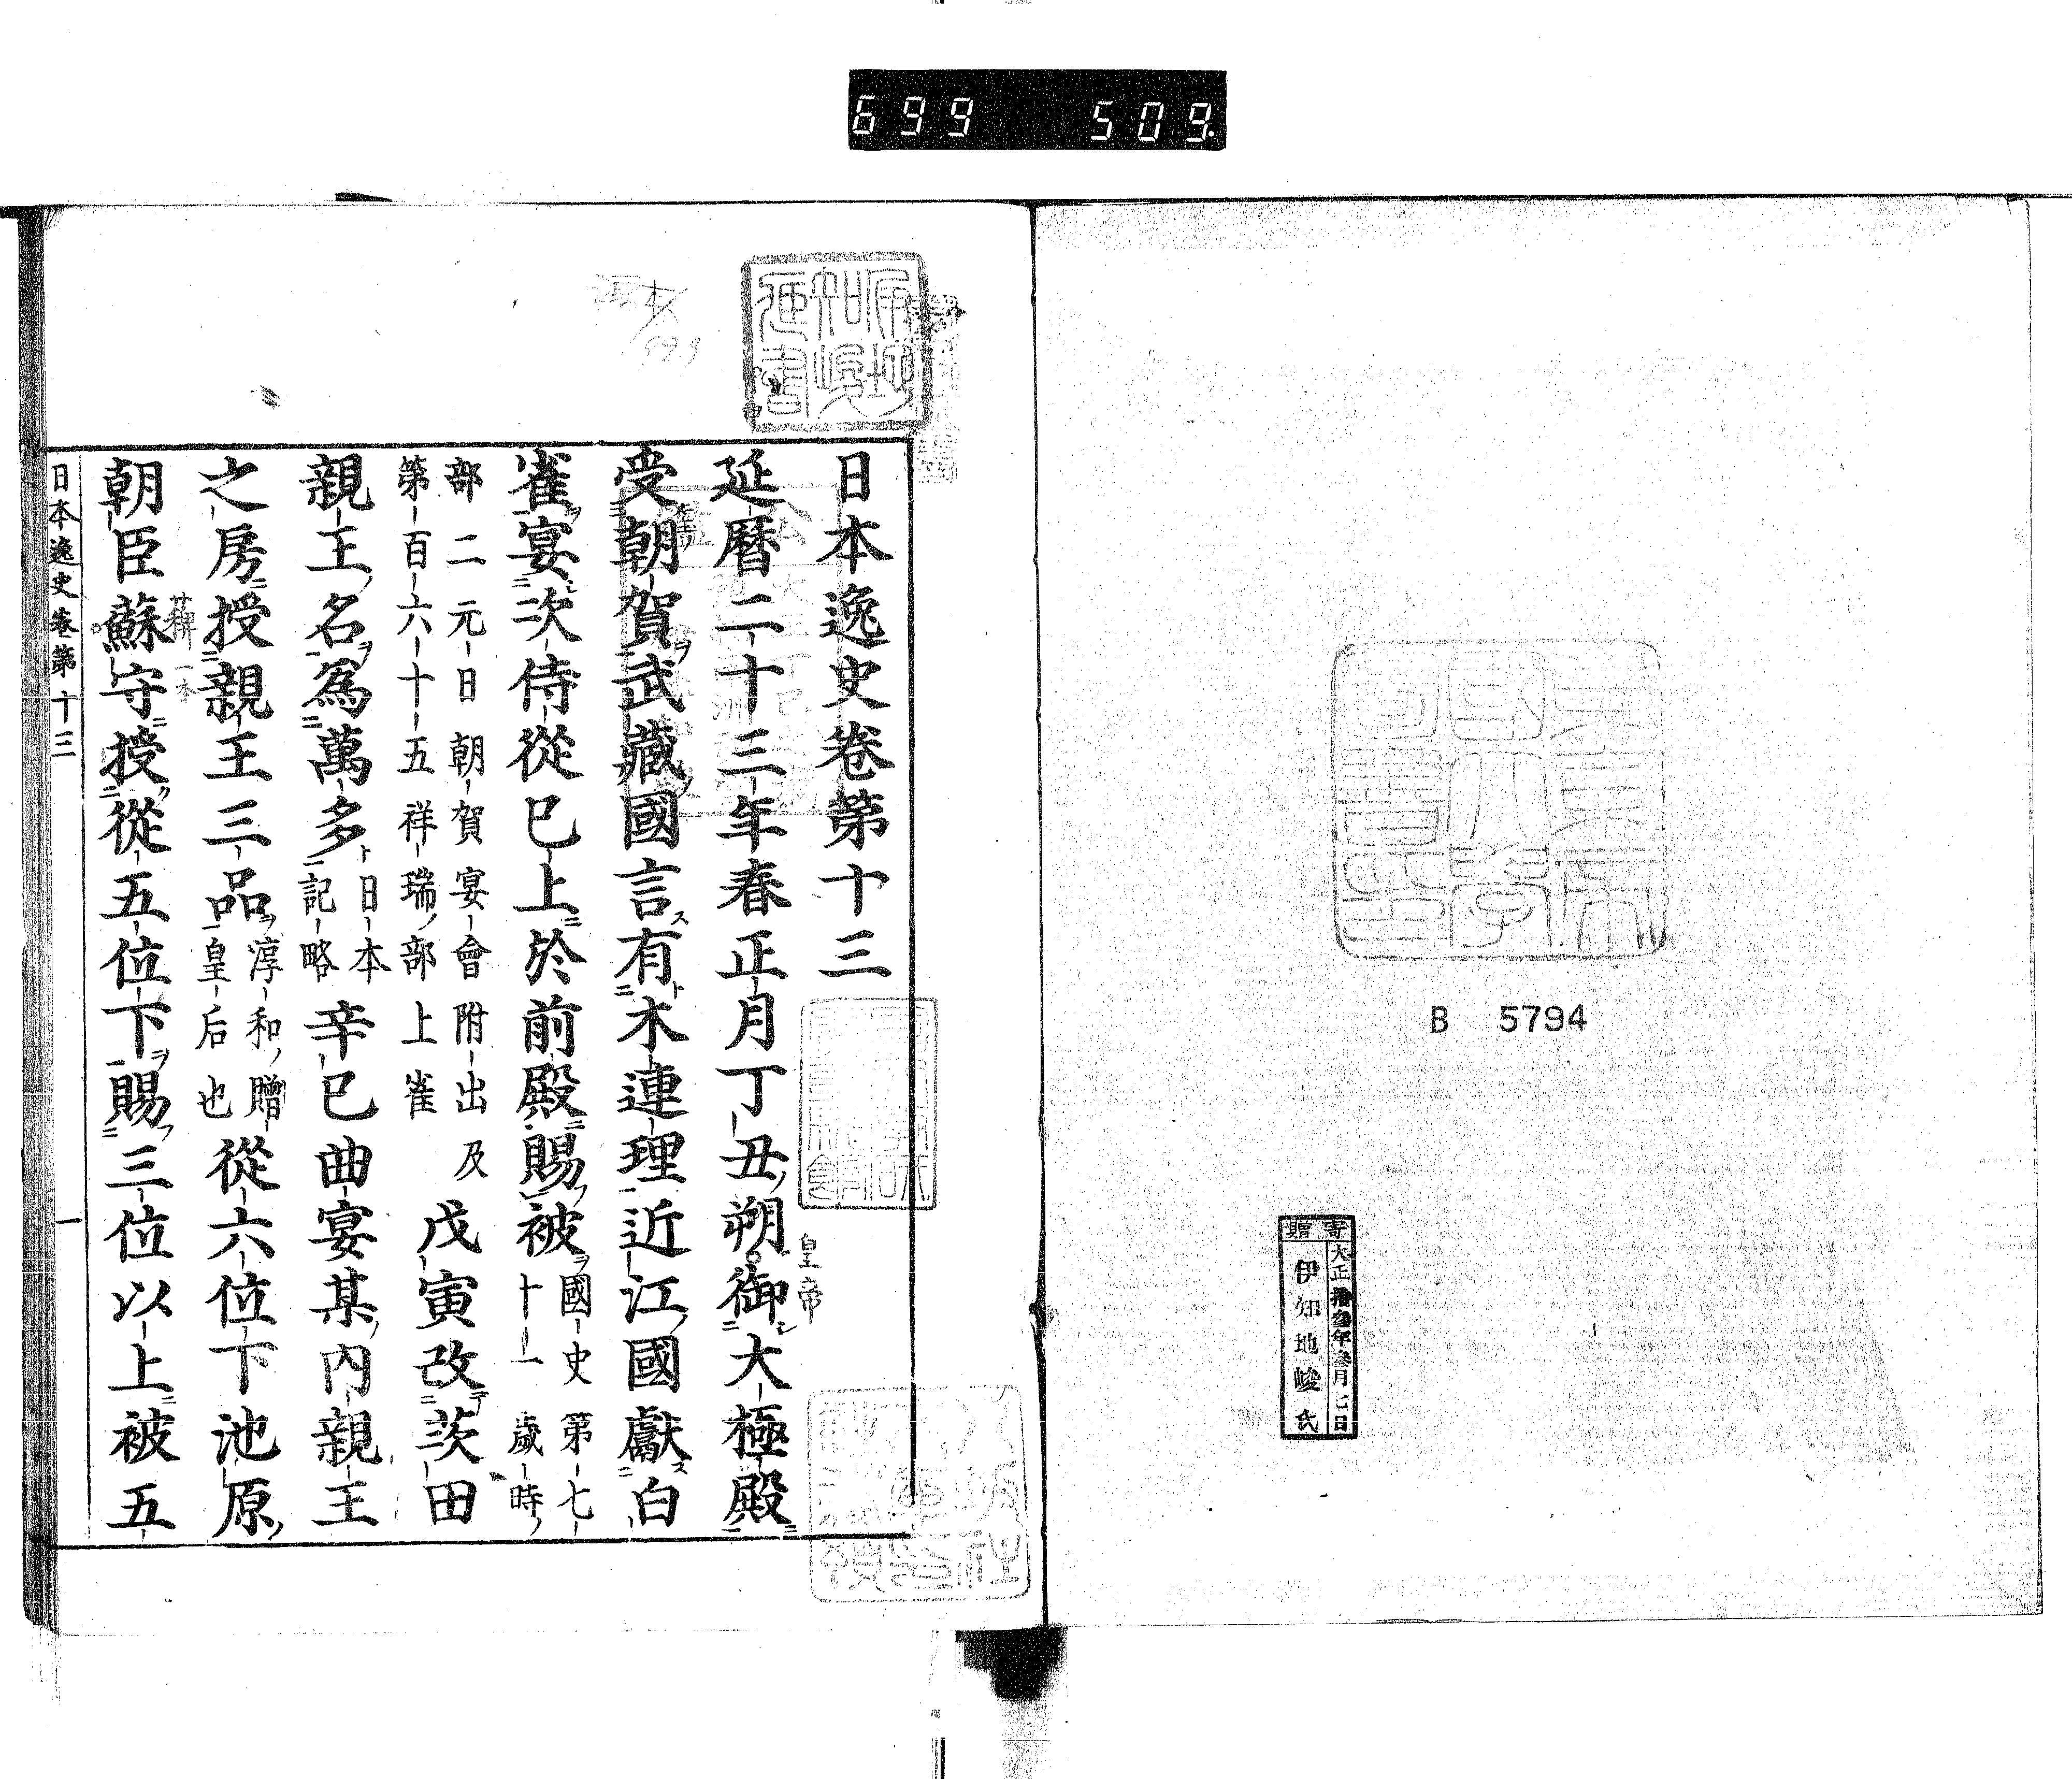 699 509.
B 5794
寄贈
大正拾參年參月七日
伊知地峻氏
日本逸史卷第十三
延曆二十三年春正月丁丑朔御大極殿
皇帝
受朝賀武藏國言有木連理近江國獻白
雀宴次侍從已上於前殿賜被
國史第七
十一歲時
部二元日朝賀宴會附出及
第百六十五祥瑞部上雀
戊寅改茨田
親王名爲萬多
日本
記略
辛巳曲宴某內親王
之房授親王三品
淳和贈
皇后也
從六位下池原
朝臣蘇守授從五位下賜三位以上被五
一本
日本逸史卷第十三
一